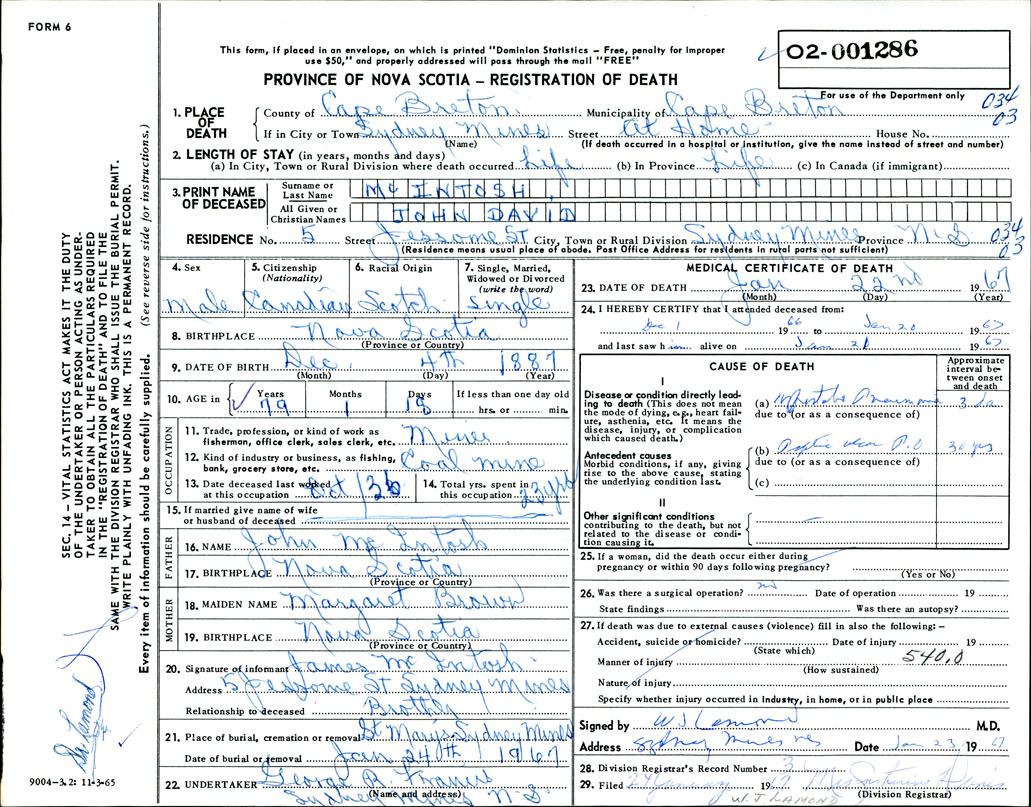 FORM 6
This form, if placed in an envelope, on which is printed "Dominion Statistics – Free, penalty for improper
use $50," and properly addressed will pass through the mail "FREE"
02-001286
PROVINCE OF NOVA SCOTIA – REGISTRATION OF DEATH
For use of the Department only
034
03
1. PLACE OF DEATH
County of Cape Breton Municipality of Cape Breton
If in City or Town Sydney Mines Street At Home House No.
(Name) (If death occurred in a hospital or institution, give the name instead of street and number)
2. LENGTH OF STAY (in years, months and days)
(a) In City, Town or Rural Division where death occurred Life (b) In Province Life (c) In Canada (if immigrant)
3. PRINT NAME OF DECEASED
Surname or Last Name McINTOSH,
All Given or Christian Names JOHN DAVID
RESIDENCE No. 5 Street Jessome St City, Town or Rural Division Sydney Mines Province N.S.
(Residence means usual place of abode. Post Office Address for residents in rural parts not sufficient)
034
03
4. Sex
Male
5. Citizenship
(Nationality)
Canadian
6. Racial Origin
Scotch
7. Single, Married, Widowed or Divorced
(write the word)
Single
8. BIRTHPLACE Nova Scotia
(Province or Country)
9. DATE OF BIRTH Dec. 4th 1887
(Month) (Day) (Year)
10. AGE in Years Months Days If less than one day old
79 1 18 hrs. or min.
OCCUPATION
11. Trade, profession, or kind of work as
fisherman, office clerk, sales clerk, etc. Miner
12. Kind of industry or business, as fishing,
bank, grocery store, etc. Coal mine
13. Date deceased last worked
at this occupation Oct/36
14. Total yrs. spent in
this occupation 23 yrs
15. If married give name of wife
or husband of deceased
FATHER
16. NAME John McIntosh
17. BIRTHPLACE Nova Scotia
(Province or Country)
MOTHER
18. MAIDEN NAME Margaret Brown
19. BIRTHPLACE Nova Scotia
(Province or Country)
20. Signature of informant James McIntosh
Address 5 Jessome St Sydney Mines
Relationship to deceased Brother
21. Place of burial, cremation or removal St Marys Sydney Mines
Date of burial or removal Jan 24th 1967
22. UNDERTAKER George B. Francis
(Name and address)
Sydney Mines N.S.
MEDICAL CERTIFICATE OF DEATH
23. DATE OF DEATH Jan 22nd 1967
(Month) (Day) (Year)
24. I HEREBY CERTIFY that I attended deceased from:
Dec 1 1966 to Jan 20 1967
and last saw him alive on Jan 21 1967
CAUSE OF DEATH
Approximate interval between onset and death
I
Disease or condition directly leading to death (This does not mean the mode of dying, e.g., heart failure, asthenia, etc. It means the disease, injury, or complication which caused death.)
(a) Hypostatic Pneumonia 3 da
due to (or as a consequence of)
Antecedent causes
Morbid conditions, if any, giving rise to the above cause, stating the underlying condition last.
(b) Peptic ulcer P.O 30 yrs
due to (or as a consequence of)
(c)
II
Other significant conditions
contributing to the death, but not related to the disease or condition causing it.
25. If a woman, did the death occur either during
pregnancy or within 90 days following pregnancy?
(Yes or No)
26. Was there a surgical operation? no Date of operation 19
State findings Was there an autopsy?
27. If death was due to external causes (violence) fill in also the following: –
Accident, suicide or homicide? Date of injury 19
(State which)
Manner of injury 540,0
(How sustained)
Nature of injury
Specify whether injury occurred in industry, in home, or in public place
Signed by W J Lamond M.D.
Address Sydney Mines NS Date Jan 23, 1967
28. Division Registrar's Record Number 3
29. Filed 24 January 19
(Division Registrar)
W. J LAMOND
SEC. 14 – VITAL STATISTICS ACT MAKES IT THE DUTY
OF THE UNDERTAKER OR PERSON ACTING AS UNDER-
TAKER TO OBTAIN ALL THE PARTICULARS REQUIRED
IN THE "REGISTRATION OF DEATH" AND TO FILE THE
SAME WITH THE DIVISION REGISTRAR WHO SHALL ISSUE THE BURIAL PERMIT.
WRITE PLAINLY WITH UNFADING INK. THIS IS A PERMANENT RECORD.
Every item of information should be carefully supplied. (See reverse side for instructions.)
Dr Lamond
9004–3.2: 11-3-65